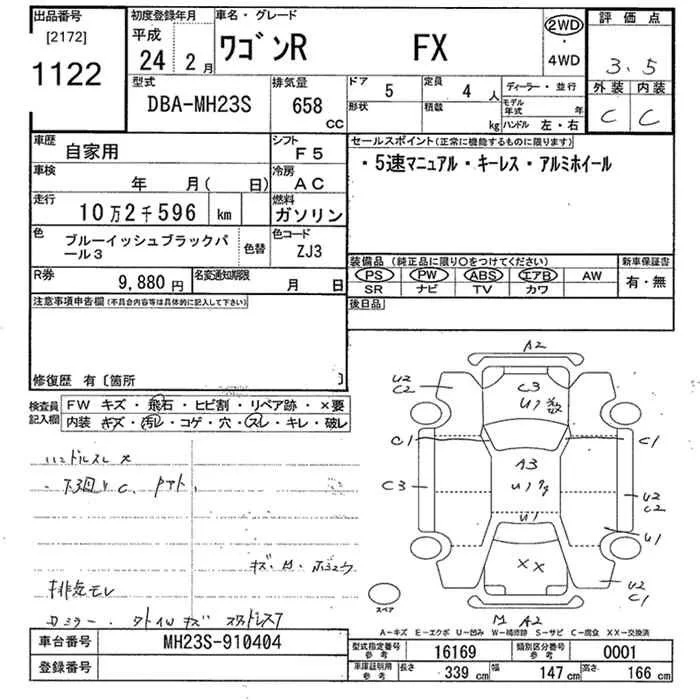 出品番号
[2172]
1122
初度登録年月
平成
24 2月
車名・グレード
ワゴンR FX
2WD
・
4WD
評価点
3.5
外装 内装
C C
型式
DBA-MH23S
排気量
658
CC
ドア 5
定員 4 人
形状
積載 kg
ディーラー・並行
モデル年式 年
ハンドル 左・右
車歴
自家用
シフト
F5
車検
年 月( 日)
冷房
AC
走行
10万2千596 km
燃料
ガソリン
色
ブルーイッシュブラックパール3
色替
色コード
ZJ3
R券
9,880円
名変通知期限
月 日
セールスポイント(正常に機能するものに限ります)
・5速マニュアル・キーレス・アルミホイール
装備品 (純正品に限り○をつけてください)
新車保証書
PS PW ABS エアB AW
有・無
SR ナビ TV カワ
後日品
注意事項申告欄(不具合内容等は具体的に記入して下さい)
修復歴 有〔箇所 〕
検査員記入欄
FW キズ・飛石・ヒビ割・リペア跡・×要
内装 キズ・汚レ・コゲ・穴・スレ・キレ・破レ
ハンドルスレ 大
下回り C.
排気モレ
A2
U2
C2
C3
C1
C1
C3
A3
U2
C2
U1
U1
XX
U2
C1
スペア
M A2
A−キズ E−エクボ U−凹み W−補修跡 S−サビ C−腐食 XX−交換済
車台番号
MH23S-910404
登録番号
型式指定番号
参考
16169
類別区分番号
参考
0001
車庫証明用
参考
長さ 339 cm
幅 147 cm
高さ 166 cm